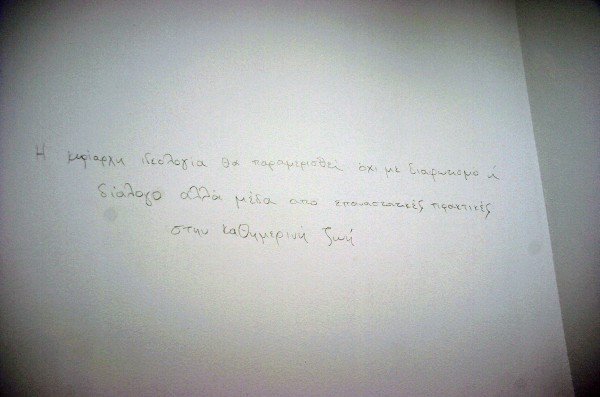 Η κυρίαρχη ιδεολογία θα παραμερισθεί όχι με διαφωτισμό ή
διάλογο αλλά μέσα από επαναστατικές πρακτικές
στην καθημερινή ζωή